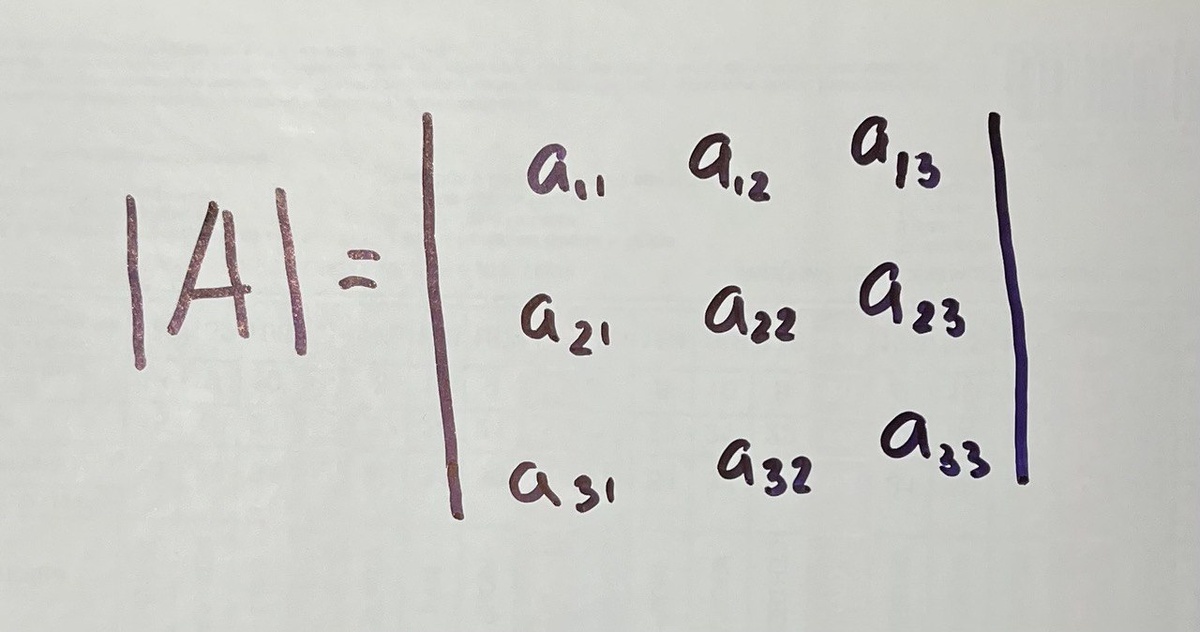 |A| = | a₁₁ a₁₂ a₁₃ |
| a₂₁ a₂₂ a₂₃ |
| a₃₁ a₃₂ a₃₃ |